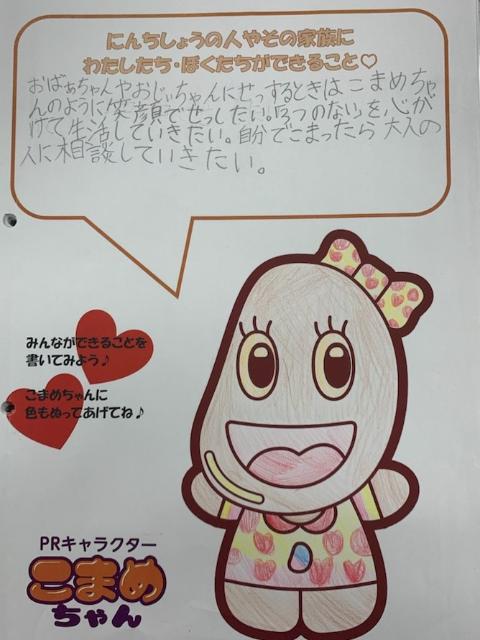 にんちしょうの人やその家族に
わたしたち・ぼくたちができること♡
おばあちゃんやおじいちゃんにせっするときはこまめちゃ
んのように笑顔でせっしたい。3つのない」を心が
けて生活していきたい。自分でこまったら大人の
人に相談していきたい。
みんなができることを
書いてみよう♪
こまめちゃんに
色もぬってあげてね♪
PRキャラクター
こまめ
ちゃん